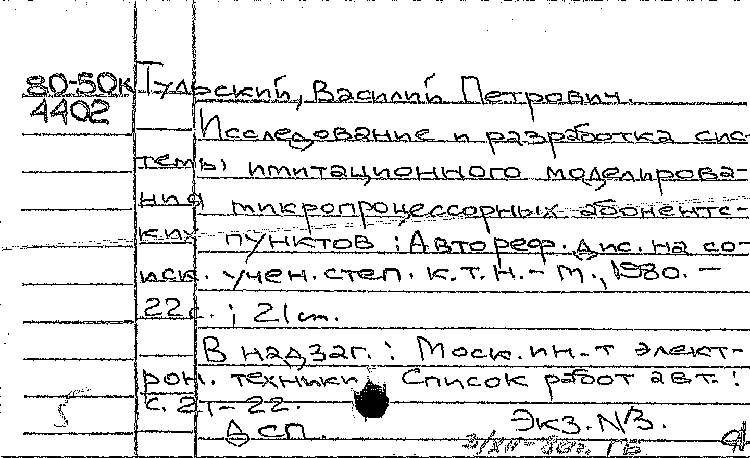 80-50к Тульский, Василий Петрович.
4402
Исследование и разработка сис-
темы имитационного моделирова-
ния микропроцессорных абонентс-
ких пунктов : Автореф. дис. на со-
иск. учен. степ. к.т.н. - М., 1980. -
22с. ; 21 см.
В надзаг. : Моск. ин-т элект-
рон. техники. Список работ авт. :
с. 21-22.
ДСП. Экз. N3.
3/XII-80г. ГБ